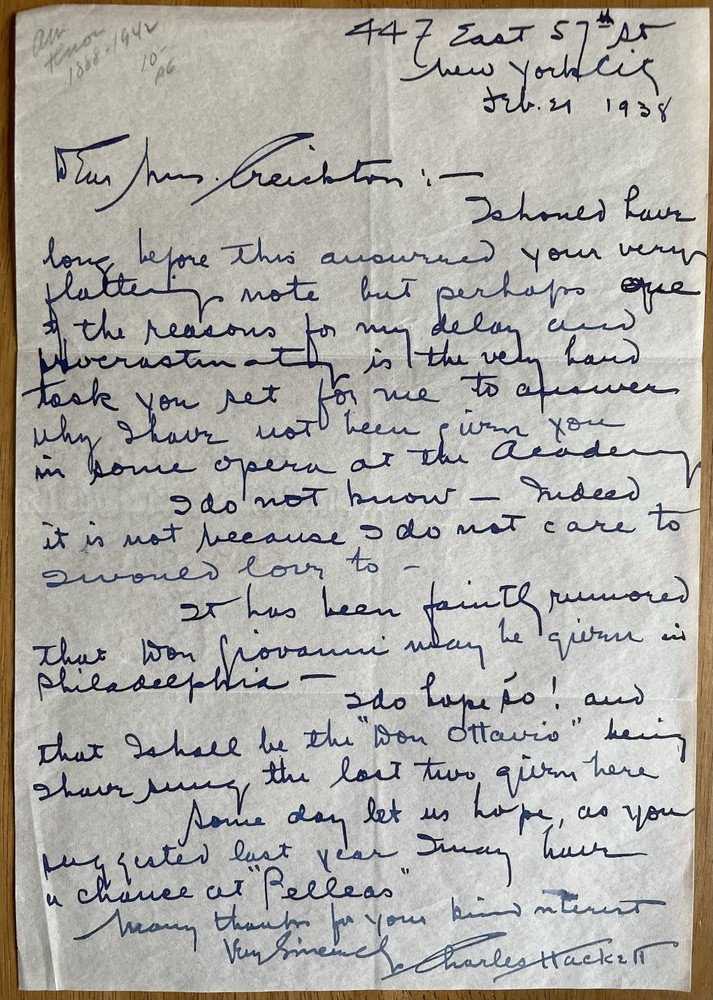 Am
tenor
1888-1942
10-
AG
447 East 57th St
New York City
Feb. 21 1938
Dear Mrs. Creickton :—
I should have
long before this answered your very
flattering note but perhaps one
of the reasons for my delay and
procrastinating is the very hard
task you set for me to answer
why I have not been given you
in some opera at the Academy
I do not know — Indeed
it is not because I do not care to
I would love to -
It has been faintly rumored
that Don Giovanni may be given in
Philadelphia —
I do hope so! and
that I shall be the "Don Ottavio" being
I have sung the last two given here
Some day let us hope, as you
suggested last year I may have
a chance at "Pelleas"
Many thanks for your kind interest
Very Sincerely
Charles Hackett